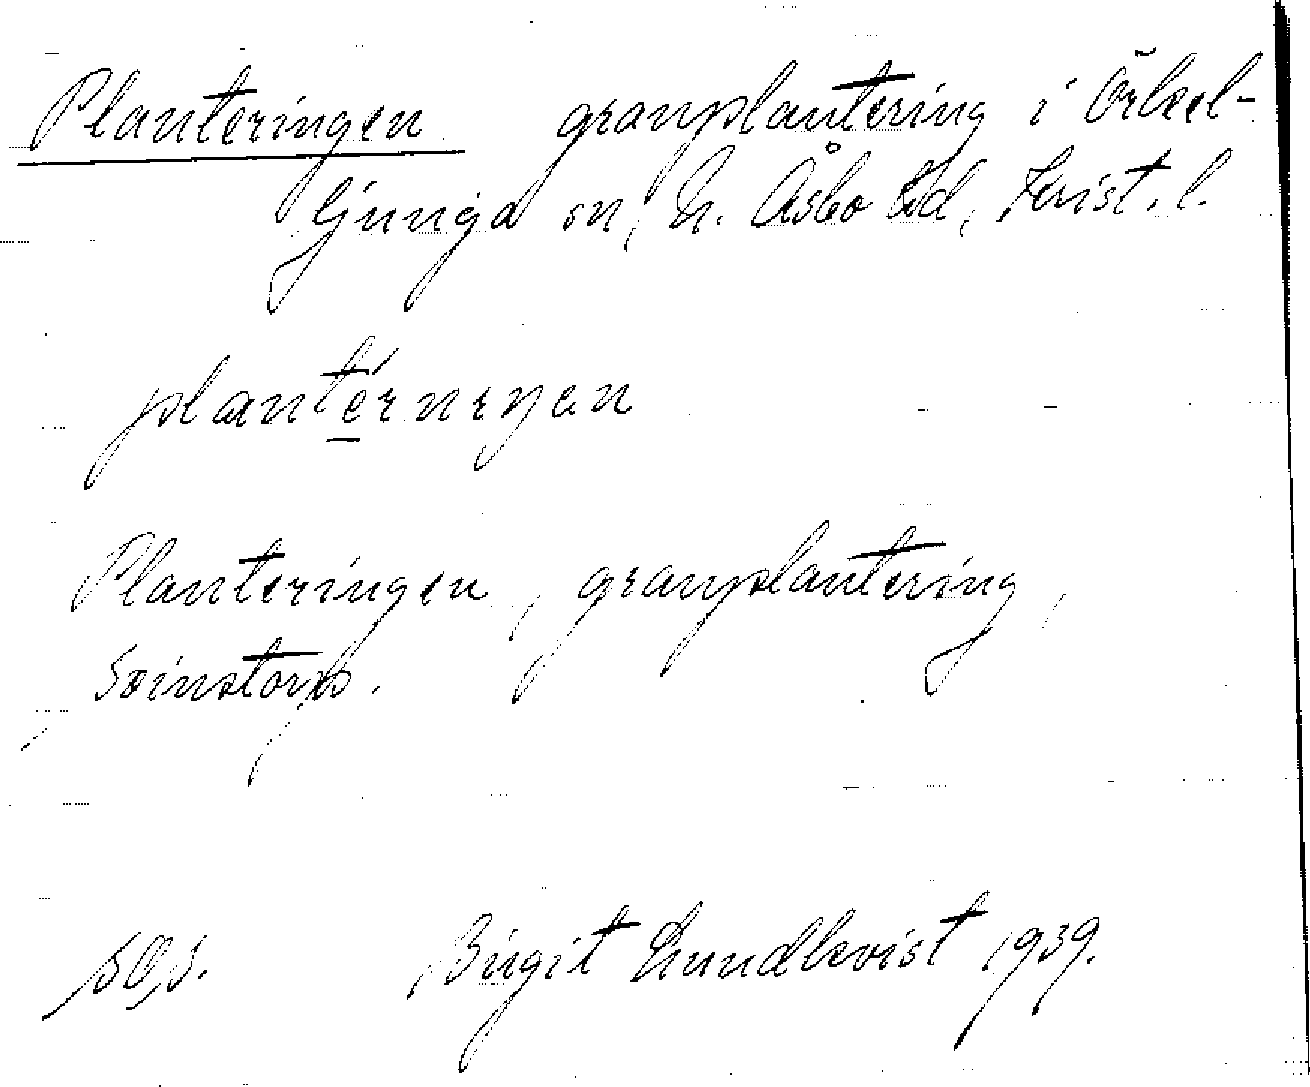 Planteringen granplantering i Örkel-
ljunga sn, N. Åsbo hd, Krist. l.
planténiŋen
Planteringen, granplantering,
Svinstorp.
Birgit Lundkvist 1939.